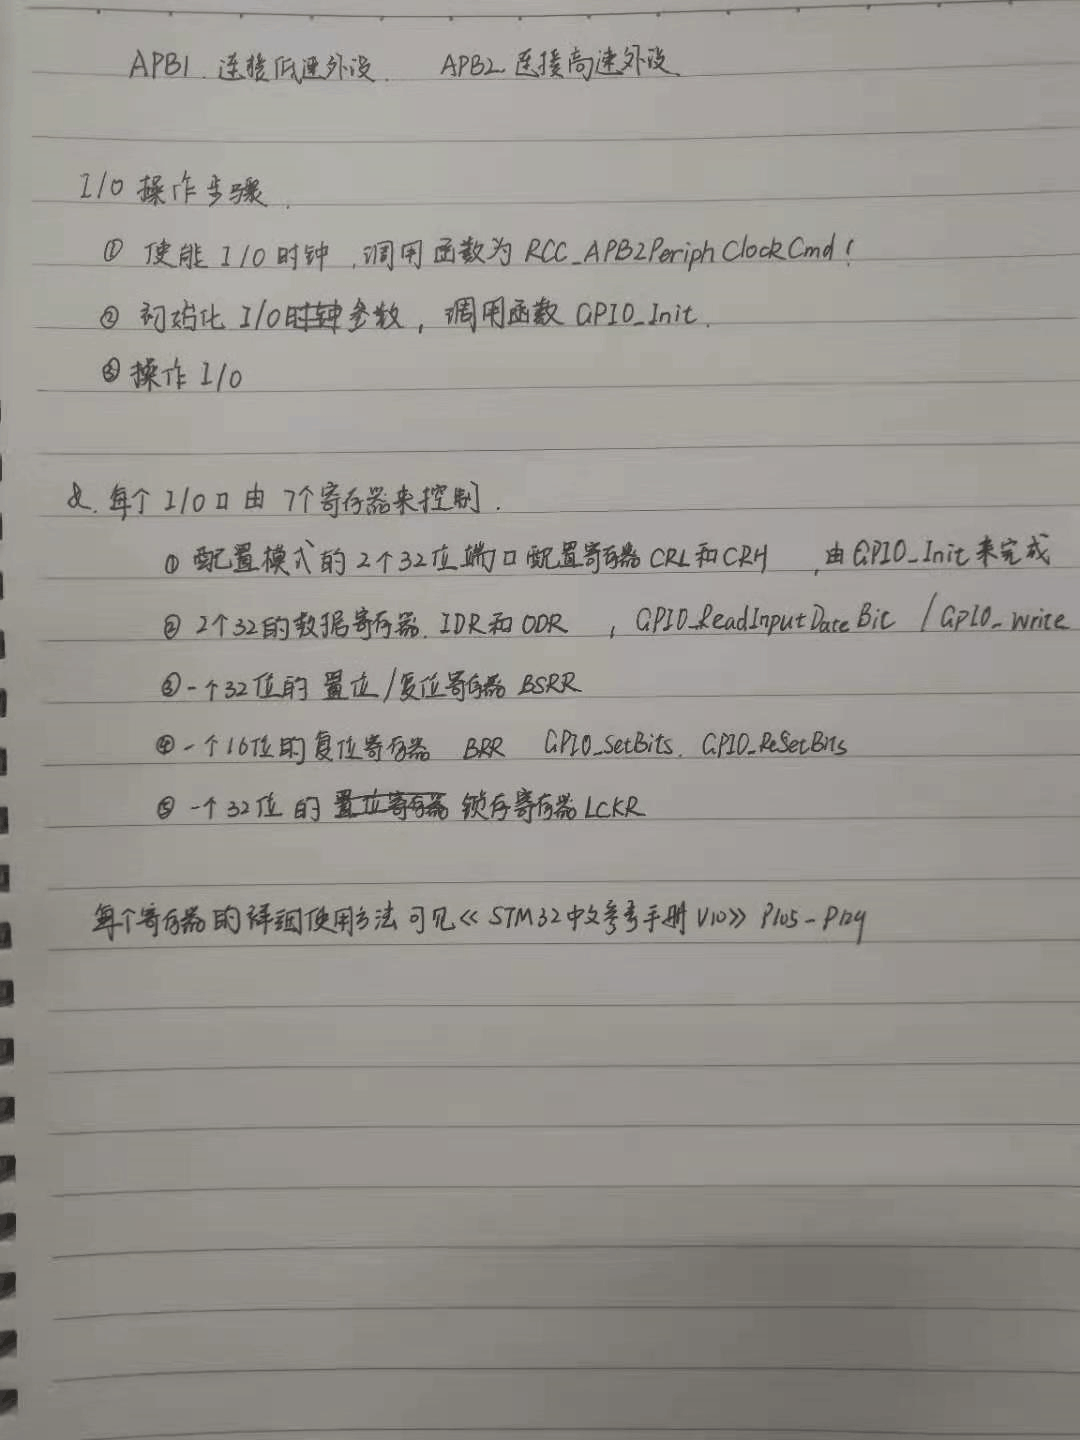 APB1 连接低速外设. APB2 连接高速外设
I/O 操作步骤.
① 使能 I/O 时钟 ,调用函数为 RCC_APB2PeriphClockCmd!
② 初始化 I/O时钟参数, 调用函数 GPIO_Init.
③ 操作 I/O
2. 每个 I/O口 由 7个寄存器来控制.
① 配置模式的 2个32位端口配置寄存器 CRL和CRH ,由GPIO_Init来完成
② 2个32的数据寄存器 IDR和ODR , GPIO_ReadInputDateBit / GPIO_write
③ 一个32位的 置位/复位寄存器 BSRR
④ 一个16位的复位寄存器 BRR GPIO_SetBits. GPIO_ReSetBits
⑤ 一个32位的 置位寄存器 锁存寄存器 LCKR
每个寄存器的详细使用方法可见《STM32中文参考手册 V10》 P105-P129